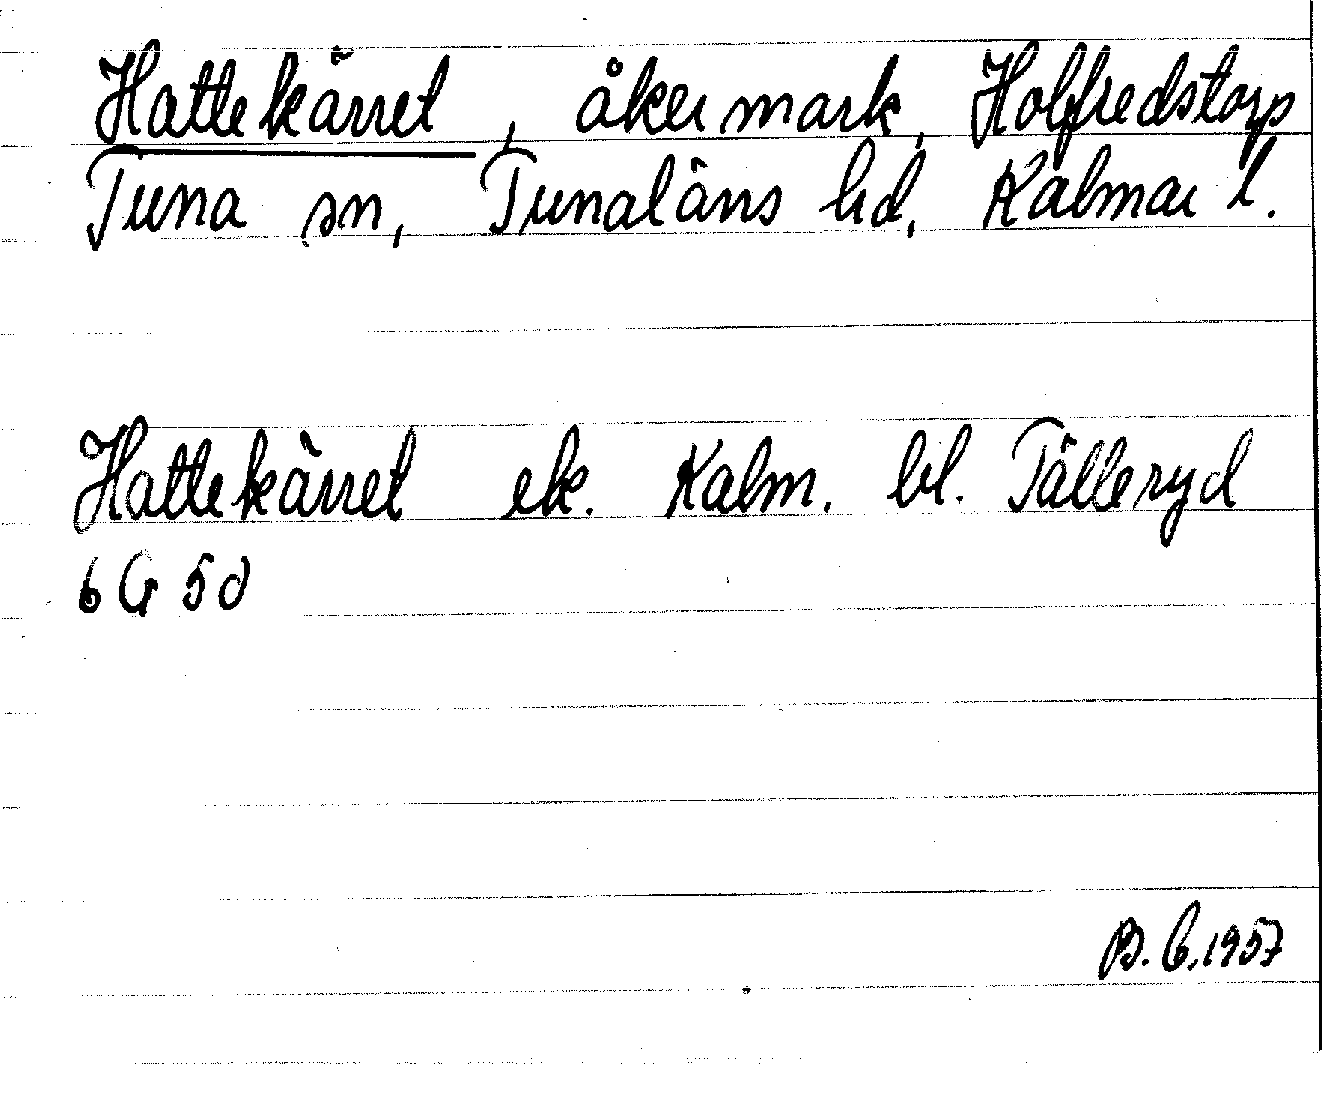 Hattekärret, åkermark, Holfredstorp
Tuna sn, Tunaläns hd, Kalmar l.
Hattekärret ek. Kalm. bl. Tälleryd
6 G 5 d
B. C. 1957